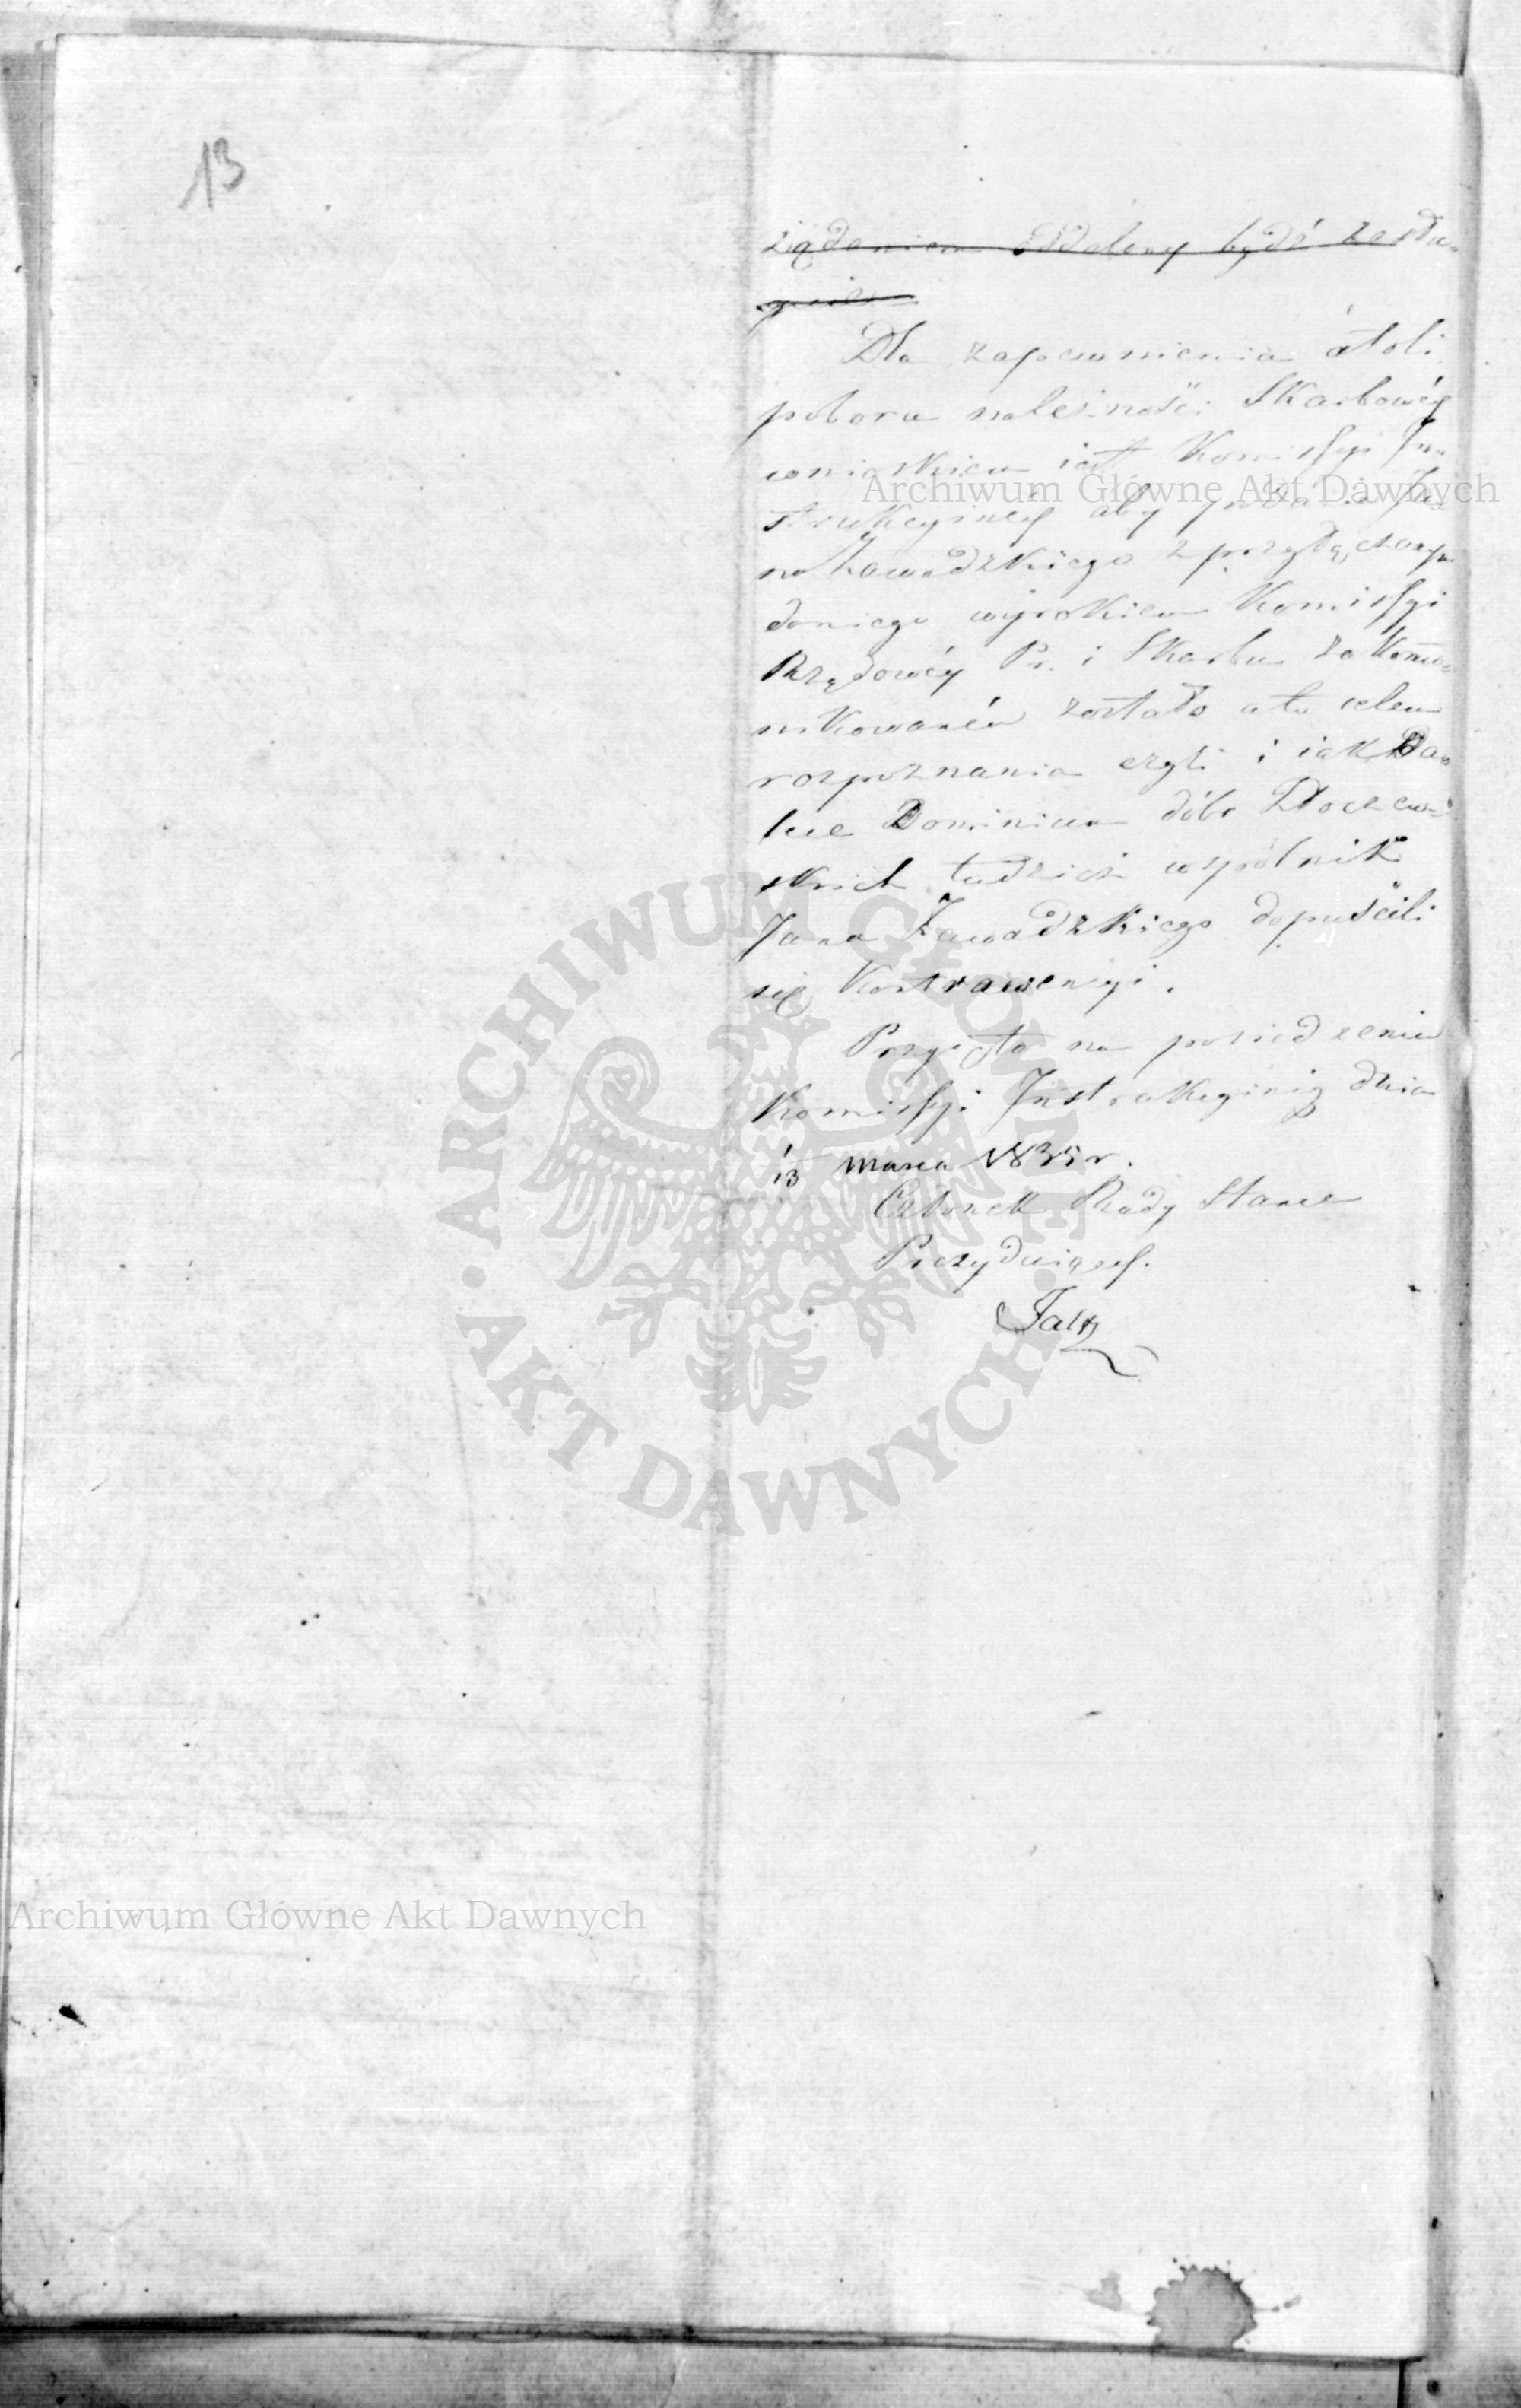 13
żądaniem oddalony bydź zasłu-
guie.
Dla zapewnienia atoli
poboru należności Skarbowéy
wnioskiem iest Kommissyi In-
strukcyinéy aby podanie Ja-
na Zawadzkiego z przyłączonym
doniego wyrokiem Komissyi
Rządowéy Pr. i Skarbu zakomu-
nikowaném zostało a to celem
rozpoznania czyli i iak Daw-
ne Dominium dóbr Złoczew-
skich tudzież wspólnik
Jana Zawadzkiego dopuścili
się Kontrawencyi.
Przyięto na posiedzeniu
Komissyi Instrukcyinéy dnia
13 marca 1835 r.
Członek Rady Stanu
Prezyduiący.
Faltz
Archiwum Główne Akt Dawnych
ARCHIWUM GŁÓWNE AKT DAWNYCH
Archiwum Główne Akt Dawnych